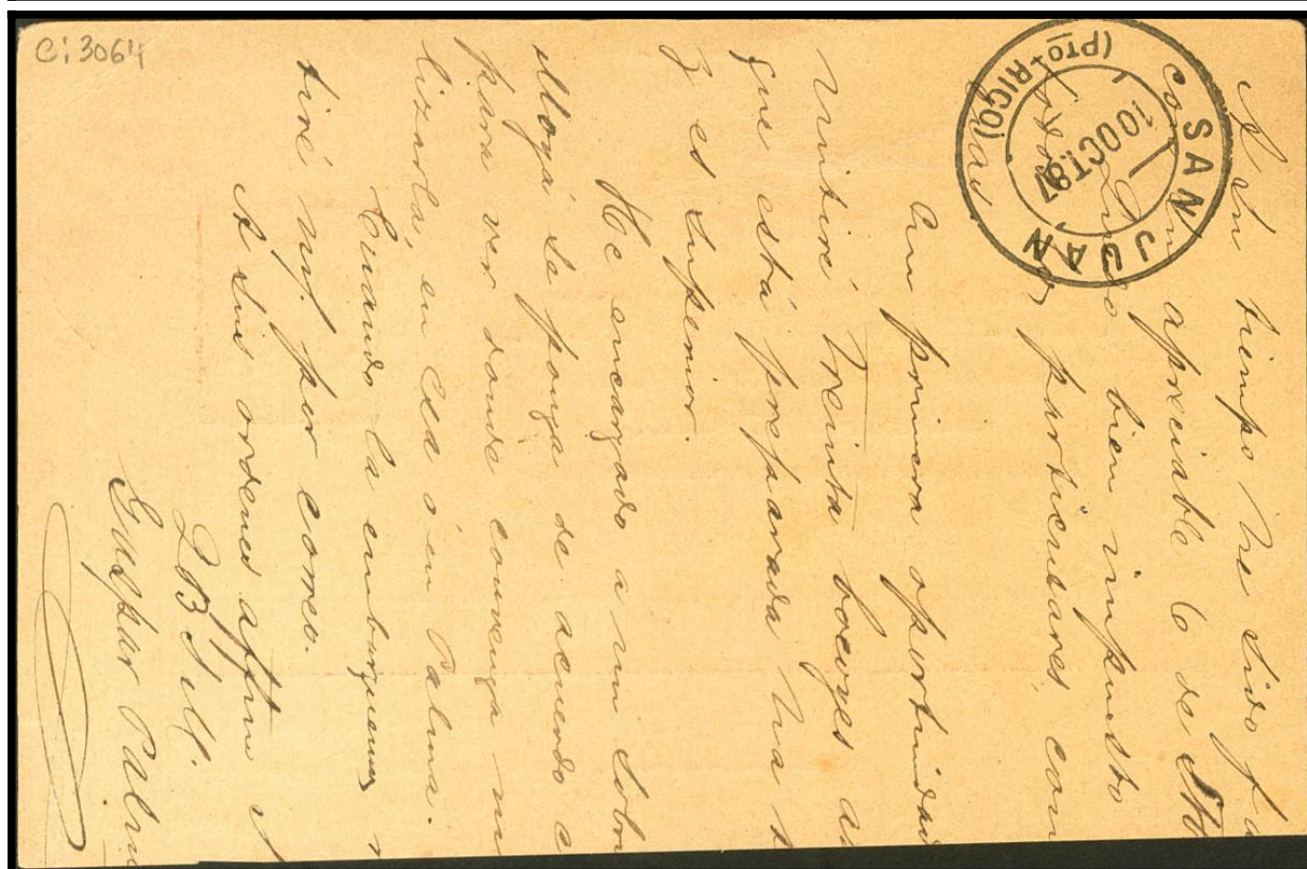 Ci 3064
SAN JUAN
10 OCT. 87
(PTO-RICO)
A su tiempo he sido fa
con su apreciable 6 de
Quedo bien impuesto
particulares con
En primera oportunidad
remitiré treinta bocoyes
que está preparada
y es superior.
He encargado a mi sobri
Moyá se ponga de acuerdo c
para ver donde convenga
lizarla, en esa ó en Palma.
Cuando la embarquemos
tiré por correo.
A sus ordenes affmo
Gaspar Palm